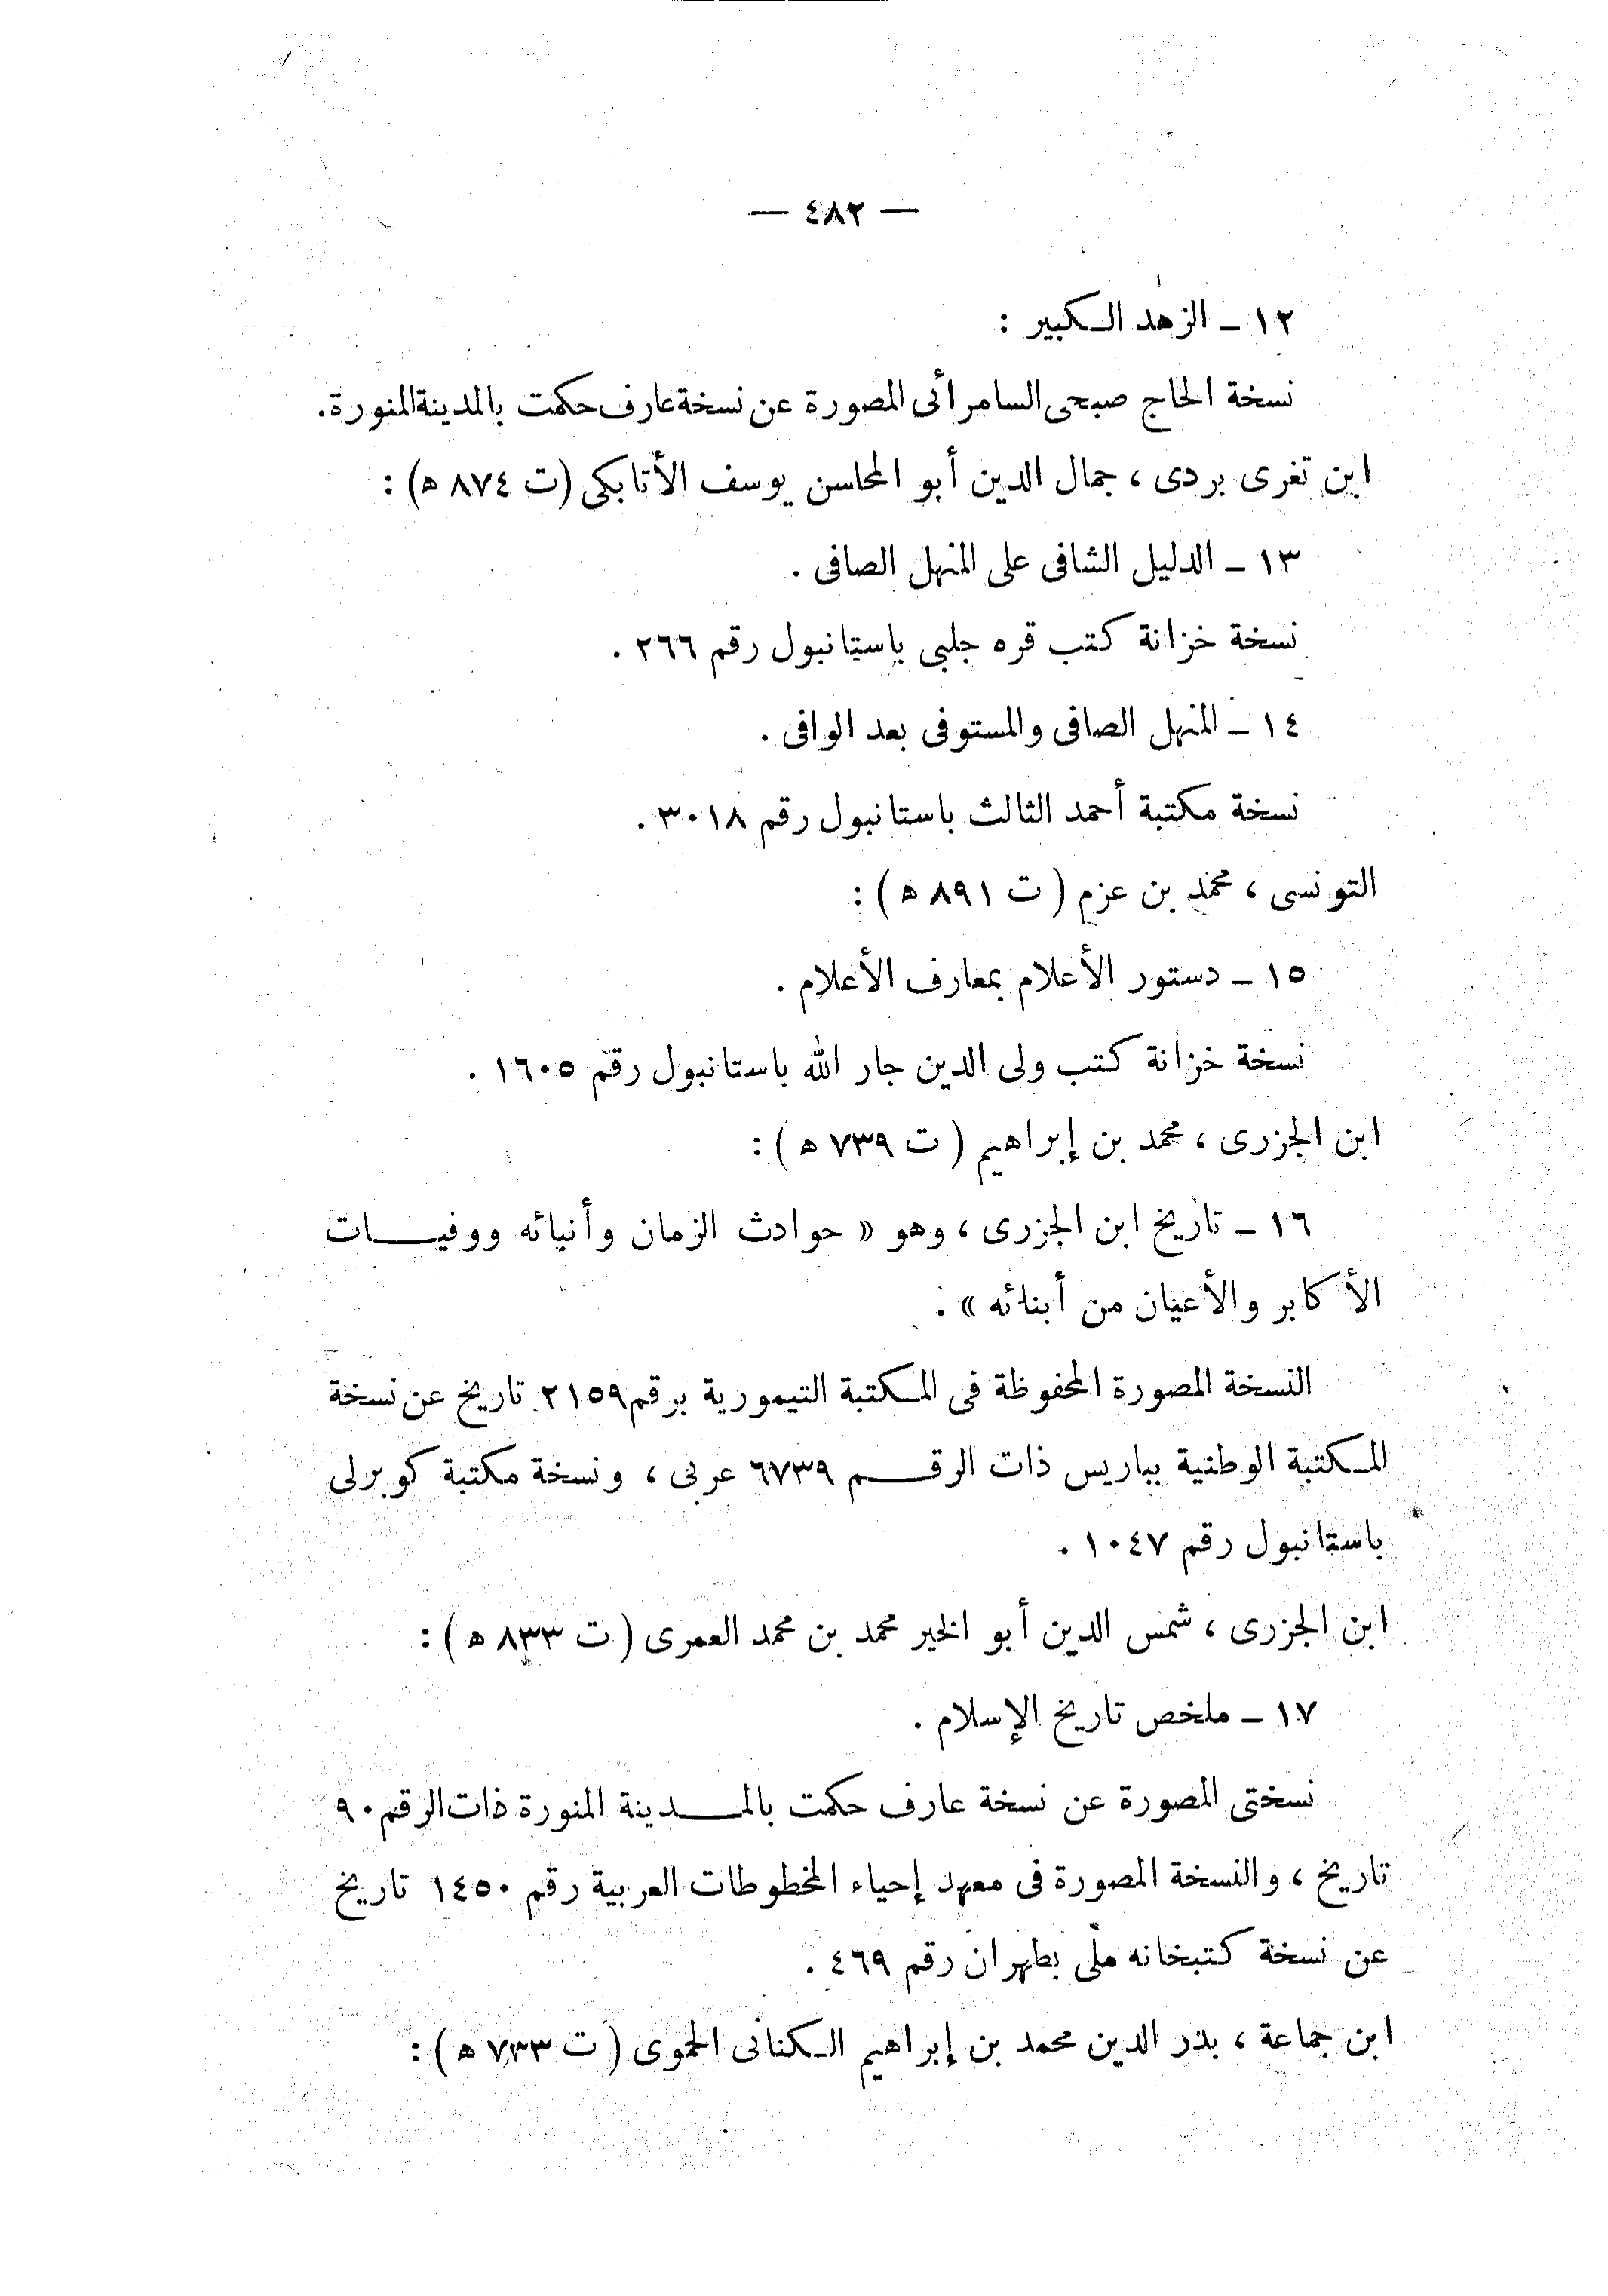 — ٤٨٢ —
١٢ ـ الزهد الكبير :
نسخة الحاج صبحى السامرأئى المصورة عن نسخة عارف حكمت بالمدينة المنورة.
ابن تغرى بردى ، جمال الدين أبو المحاسن يوسف الأتابكى (ت ٨٧٤ ه) :
١٣ ـ الدليل الشافى على المنهل الصافى .
نسخة خزانة كتب قره جلبى باستانبول رقم ٢٦٦ .
١٤ ـ المنهل الصافى والمستوفى بعد الوافى .
نسخة مكتبة أحمد الثالث باستانبول رقم ٣٠١٨ .
التونسى ، محمد بن عزم ( ت ٨٩١ ه ) :
١٥ ـ دستور الأعلام بمعارف الأعلام .
نسخة خزانة كتب ولى الدين جار الله باستانبول رقم ١٦٠٥ .
ابن الجزرى ، محمد بن إبراهيم ( ت ٧٣٩ ه ) :
١٦ ـ تاريخ ابن الجزرى ، وهو « حوادث الزمان وأنبائه ووفيـــات
الأكابر والأعيان من أبنائه » .
النسخة المصورة المحفوظة فى المكتبة التيمورية برقم ٢١٥٩ تاريخ عن نسخة
المكتبة الوطنية بباريس ذات الرقـــم ٦٧٣٩ عربى ، ونسخة مكتبة كوبرلى
باستانبول رقم ١٠٤٧ .
ابن الجزرى ، شمس الدين أبو الخير محمد بن محمد العمرى ( ت ٨٣٣ ه ) :
١٧ ـ ملخص تاريخ الإسلام .
نسختى المصورة عن نسخة عارف حكمت بالمـــدينة المنورة ذات الرقم ٩٠
تاريخ ، والنسخة المصورة فى معهد إحياء المخطوطات العربية رقم ١٤٥٠ تاريخ
عن نسخة كتبخانه ملّى بطهران رقم ٤٦٩ .
ابن جماعة ، بدر الدين محمد بن إبراهيم الكنانى الحموى ( ت ٧٣٣ ه ) :